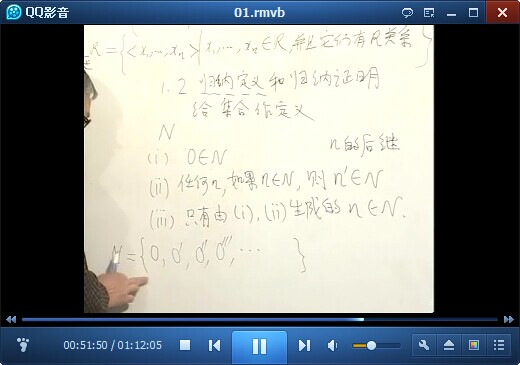 QQ影音
01.rmvb
R = {<x₁,…,xₙ> | x₁,…,xₙ∈R,并且它们有R关系}
1.2 归纳定义和归纳证明
给集合作定义
N
n的后继
(i) 0∈N
(ii) 任何n,如果n∈N,则n'∈N
(iii) 只有由(i),(ii)生成的n∈N.
N={0, 0', 0'', 0''', … }
00:51:50 / 01:12:05